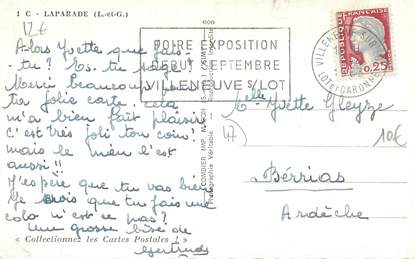 1 C - LAPARADE (L.-et-G.)
12€
Alors Yvette que fais-
tu ? Es. tu sage ?
Merci beaucoup pour
ta jolie carte. cela
m'a bien fait plaisir
c'est très joli ton coin.
mais le mien l'est
aussi !!
J'espère que tu vas bien
Je crois que tu fais une
cola n'est ce pas ?
une grosse bise de
Gertrude
« Collectionnez les Cartes Postales »
COMBIER IMP. MACON
Photographie Véritable - Interdite
FOIRE EXPOSITION
DEBUT SEPTEMBRE
VILLENEUVE S/LOT
VILLENEUVE-SUR-LOT
LOT-ET-GARONNE
REPUBLIQUE FRANÇAISE
0,25
Melle Yvette Gleyze
17
10€
Berrias
Ardèche